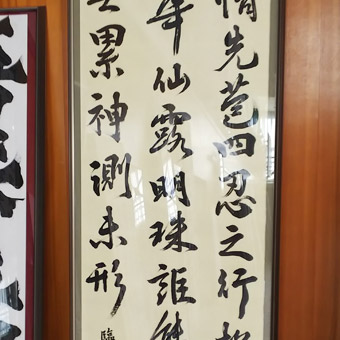 情先苞四忍之行
華仙露明珠詎能
累神測未形
臨